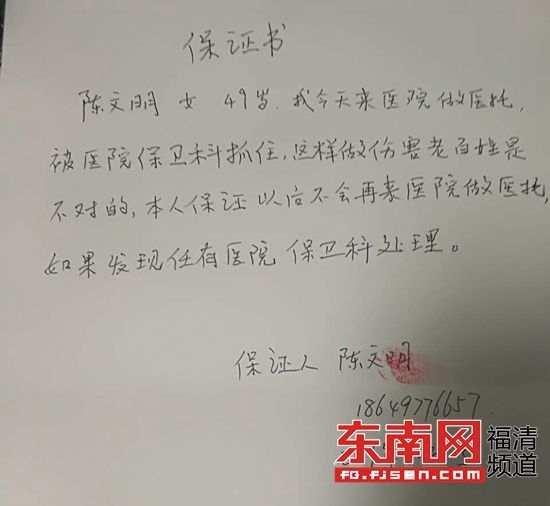 保证书
陈文明 女 49岁. 我今天来医院做医托,
被医院保卫科抓住,这样做伤害老百姓是
不对的,本人保证以后不会再来医院做医托,
如果发现任有医院保卫科处理。
保证人 陈文明
18649776657.
东南网 福清频道
FQ.FJSEN.COM